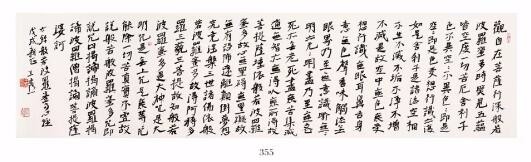 觀自在菩薩行深般若
波羅蜜多時照見五蘊
皆空度一切苦厄舍利子
色不異空空不異色色即是
空空即是色受想行識亦復
如是舍利子是諸法空相
不生不滅不垢不淨不增
不減是故空中無色無受
想行識無眼耳鼻舌身
意無色聲香味觸法無
眼界乃至無意識界無無
明亦無無明盡乃至無老
死亦無老死盡無苦集滅
道無智亦無得以無所得故
菩提薩埵依般若波羅
蜜多故心無罣礙無罣礙故
無有恐怖遠離顛倒夢想
究竟涅槃三世諸佛依般
若波羅蜜多故得阿耨多
羅三藐三菩提故知般若
波羅蜜多是大神咒是大
明咒是無上咒是無等等咒
能除一切苦真實不虛故
說般若波羅蜜多咒即
說咒曰揭諦揭諦波羅揭
諦波羅僧揭諦菩提薩
婆訶
355